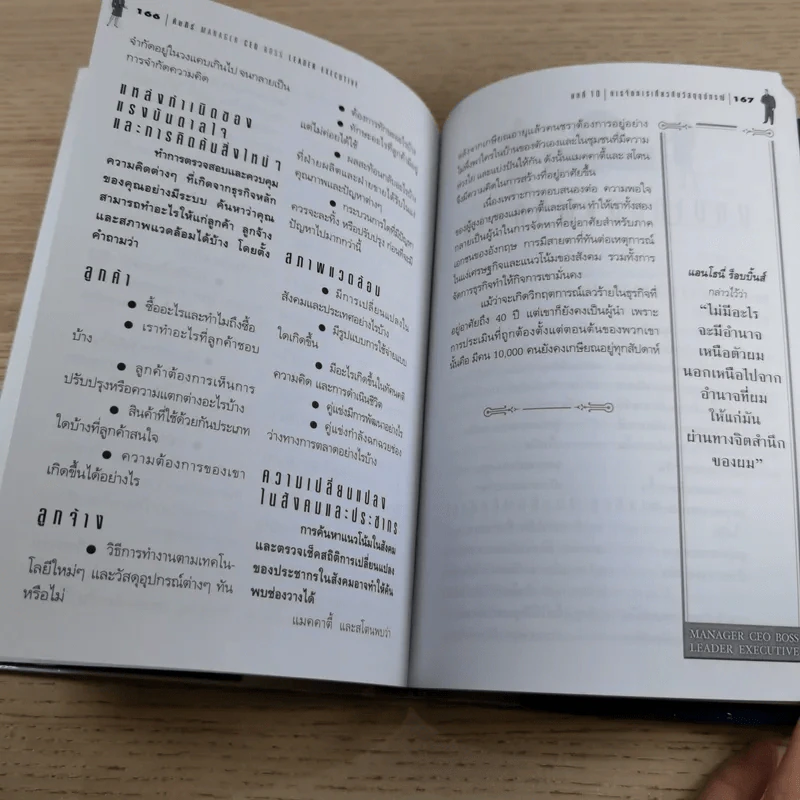 166 คัมภีร์ MANAGER CEO BOSS LEADER EXECUTIVE
จำกัดอยู่ในวงแคบเกินไป จนกลายเป็น
การจำกัดความคิด
แหล่งกำเนิดของ
แรงบันดาลใจ
และการคิดค้นสิ่งใหม่ๆ
ทำการตรวจสอบและควบคุม
ความคิดต่างๆ ที่เกิดจากธุรกิจหลัก
ของคุณอย่างมีระบบ ค้นหาว่าคุณ
สามารถทำอะไรให้แก่ลูกค้า ลูกจ้าง
และสภาพแวดล้อมได้บ้าง โดยตั้ง
คำถามว่า
ลูกค้า
● ซื้ออะไรและทำไมถึงซื้อ
● เราทำอะไรที่ลูกค้าชอบ
บ้าง
● ลูกค้าต้องการเห็นการ
ปรับปรุงหรือความแตกต่างอะไรบ้าง
● สินค้าที่ใช้ด้วยกันประเภท
ใดบ้างที่ลูกค้าสนใจ
● ความต้องการของเขา
เกิดขึ้นได้อย่างไร
ลูกจ้าง
● วิธีการทำงานตามเทคโน-
โลยีใหม่ๆ และวัสดุอุปกรณ์ต่างๆ ทัน
หรือไม่
● ต้องการทักษะอะไรบ้าง
● ทักษะอะไรที่ลูกจ้างมีอยู่
แต่ไม่ค่อยได้ใช้
● ผลสะท้อนกลับอะไรบ้าง
ที่ฝ่ายผลิตและฝ่ายขายได้รับในแง่
คุณภาพและปัญหาต่างๆ
● กระบวนการใดที่มีปัญหา
ควรจะละทิ้ง หรือปรับปรุง ก่อนที่จะมี
ปัญหาไปมากกว่านี้
สภาพแวดล้อม
● มีการเปลี่ยนแปลงใน
สังคมและประเทศอย่างไรบ้าง
● มีรูปแบบการใช้จ่ายแบบ
ใดเกิดขึ้น
● มีอะไรเกิดขึ้นในทัศนคติ
ความคิด และการดำเนินชีวิต
● คู่แข่งมีการพัฒนาอย่างไร
● คู่แข่งกำลังฉกฉวยช่อง
ว่างทางการตลาดอย่างไรบ้าง
ความเปลี่ยนแปลง
ในสังคมและประชากร
การค้นหาแนวโน้มในสังคม
และตรวจเช็คสถิติการเปลี่ยนแปลง
ของประชากรในสังคมอาจทำให้ค้น
พบช่องว่างได้
แมคคาตี้ และสโตนพบว่า
บทที่ 10 การจัดการเกี่ยวกับวัสดุอุปกรณ์ 167
หลังจากเกษียณอายุแล้วคนชราต้องการอยู่อย่าง
ไม่พึ่งพาใครในบ้านของตัวเองและในชุมชนที่มีความ
ห่วงใย และแบ่งปันให้กัน ดังนั้นแมคคาตี้และ สโตน
จึงมีความคิดในการสร้างที่อยู่อาศัยขึ้น
เนื่องเพราะการตอบสนองต่อ ความพอใจ
ของผู้สูงอายุของแมคคาตี้และสโตน ทำให้เขาทั้งสอง
กลายเป็นผู้นำในการจัดหาที่อยู่อาศัยสำหรับภาค
เอกชนของอังกฤษ การมีสายตาที่ทันต่อเหตุการณ์
ในแง่เศรษฐกิจและแนวโน้มของสังคม รวมทั้งการ
จัดการธุรกิจทำให้กิจการเขามั่นคง
แม้ว่าจะเกิดวิกฤตการณ์เลวร้ายในธุรกิจที่
อยู่อาศัยถึง 40 ปี แต่เขาก็ยังคงเป็นผู้นำ เพราะ
การประเมินที่ถูกต้องตั้งแต่ตอนต้นของพวกเขา
นั้นคือ มีคน 10,000 คนยังคงเกษียณอยู่ทุกสัปดาห์
แอนโธนี่ ร็อบบิ้นส์
กล่าวไว้ว่า
“ไม่มีอะไร
จะมีอำนาจ
เหนือตัวผม
นอกเหนือไปจาก
อำนาจที่ผม
ให้แก่มัน
ผ่านทางจิตสำนึก
ของผม”
MANAGER CEO BOSS
LEADER EXECUTIVE